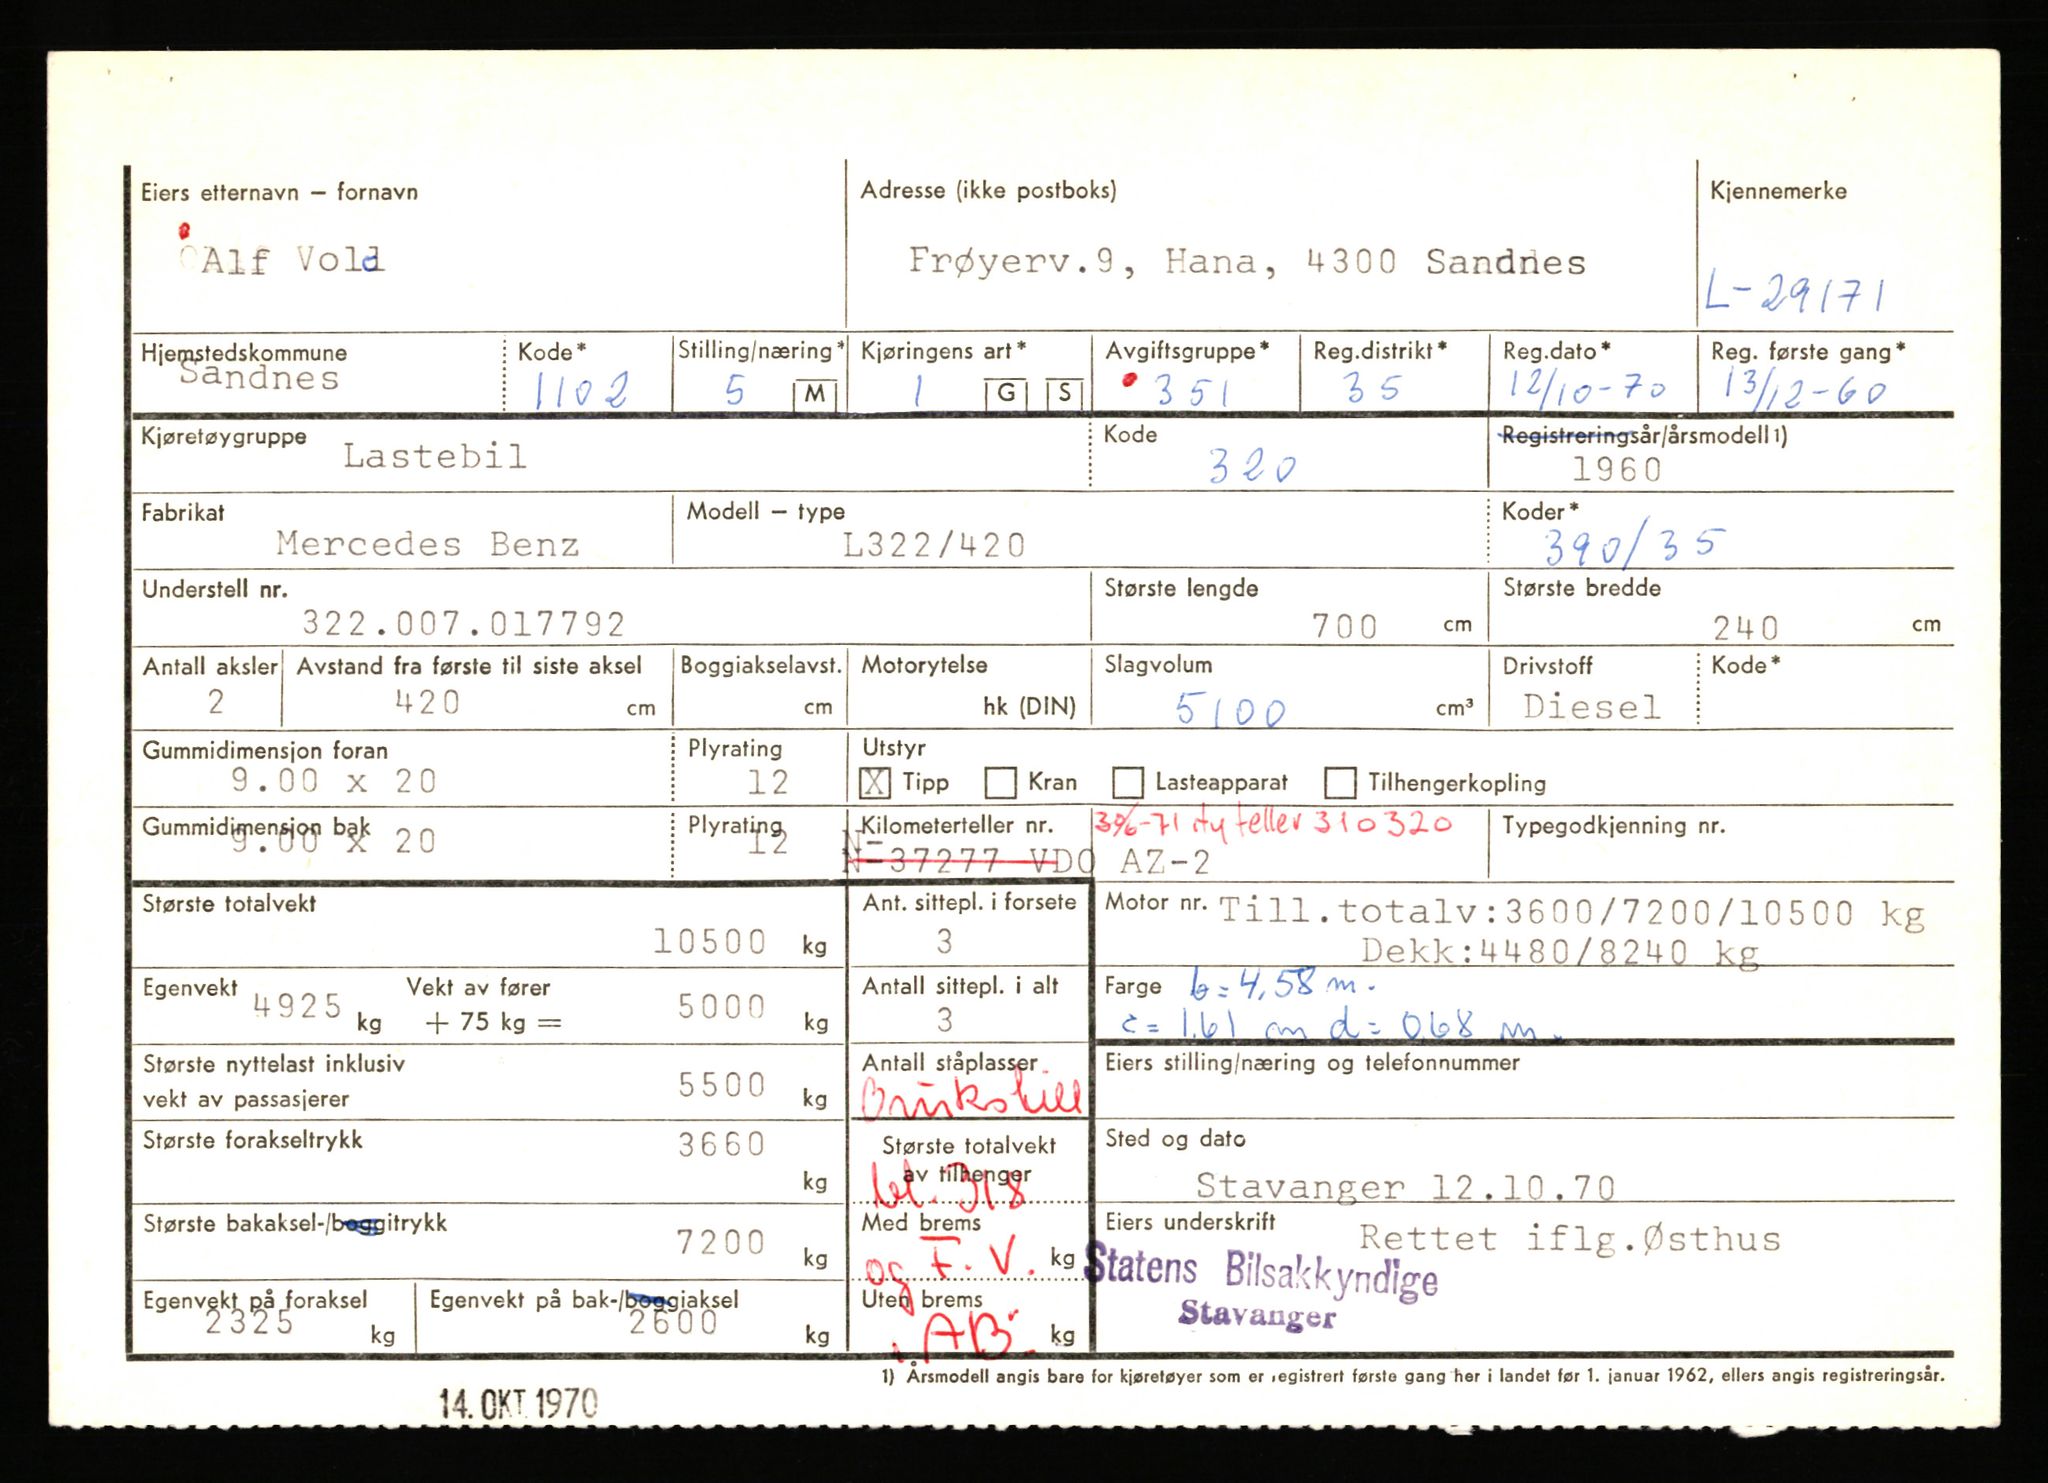 Eiers etternavn – fornavn Adresse (ikke postboks) Kjennemerke
Alf Vold Frøyerv.9, Hana, 4300 Sandnes L-29171
Hjemstedskommune Kode* Stilling/næring* Kjøringens art* Avgiftsgruppe* Reg.distrikt* Reg.dato* Reg. første gang*
Sandnes 1102 5 M 1 G S 351 35 12/10-70 13/12-60
Kjøretøygruppe Kode Registreringsår/årsmodell 1)
Lastebil 320 1960
Fabrikat Modell – type Koder*
Mercedes Benz L322/420 390/35
Understell nr. Største lengde Største bredde
322.007.017792 700 cm 240 cm
Antall aksler Avstand fra første til siste aksel Boggiakselavst. Motorytelse Slagvolum Drivstoff Kode*
2 420 cm cm hk (DIN) 5100 cm³ Diesel
Gummidimensjon foran Plyrating Utstyr
9.00 x 20 12 X Tipp Kran Lasteapparat Tilhengerkopling
Gummidimensjon bak Plyrating Kilometerteller nr. -71 ny teller 310320 Typegodkjenning nr.
9.00 x 20 12 N-37277 VDO AZ-2
Største totalvekt Ant. sittepl. i forsete Motor nr. Till.totalv:3600/7200/10500 kg
10500 kg 3 Dekk:4480/8240 kg
Egenvekt Vekt av fører Antall sittepl. i alt Farge b = 4,58 m.
4925 kg + 75 kg = 5000 kg 3 c = 1.61 m d = 0.68 m.
Største nyttelast inklusiv Antall ståplasser Eiers stilling/næring og telefonnummer
vekt av passasjerer 5500 kg Brukstill
Største forakseltrykk 3660 kg Største totalvekt Sted og dato
av tilhenger bl. 318 Stavanger 12.10.70
Største bakaksel-/boggitrykk Med brems Eiers underskrift Rettet iflg.Østhus
7200 kg og F.V. kg Statens Bilsakkyndige
Stavanger
Egenvekt på foraksel Egenvekt på bak-/boggiaksel Uten brems
2325 kg 2600 kg AB. kg
1) Årsmodell angis bare for kjøretøyer som er registrert første gang her i landet før 1. januar 1962, ellers angis registreringsår.
14. OKT. 1970